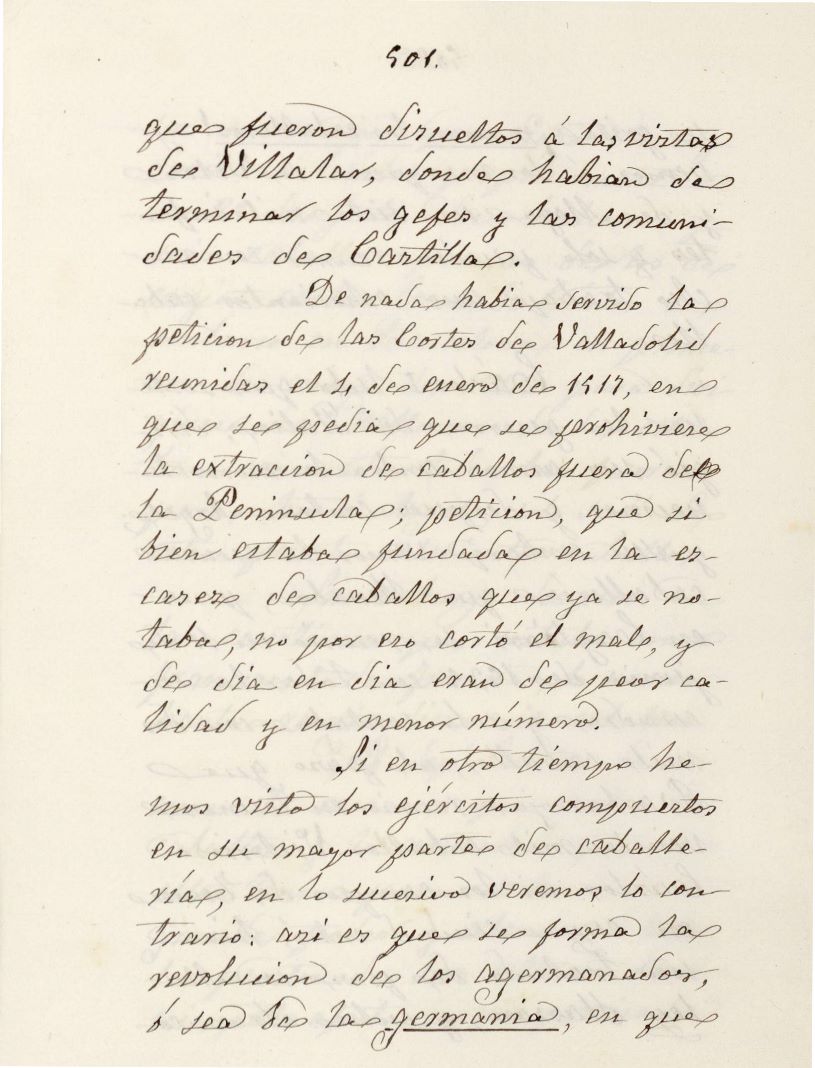 501.
que fueron disueltos á las vistas
de Villalar, donde habian de
terminar los gefes y las comuni-
dades de Castilla.
De nada habia servido la
peticion de las Cortes de Valladolid
reunidas el 4 de enero de 1517, en
que se pedia que se prohiviese
la extraccion de caballos fuera de
la Peninsula; peticion, que si
bien estaba fundada en la es-
casez de caballos que ya se no-
taba, no por eso cortó el mal, y
de dia en dia eran de peor ca-
lidad y en menor número.
Si en otro tiempo he-
mos visto los ejércitos compuestos
en su mayor parte de caballe-
ría, en lo sucesivo veremos lo con-
trario: asi es que se forma la
revolucion de los agermanados,
ó sea de la germania, en que